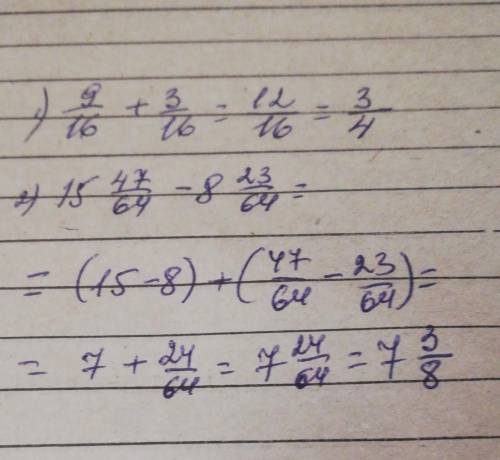 1) 9/16 + 3/16 = 12/16 = 3/4
2) 15 47/64 - 8 23/64 =
= (15 - 8) + (47/64 - 23/64) =
= 7 + 24/64 = 7 24/64 = 7 3/8